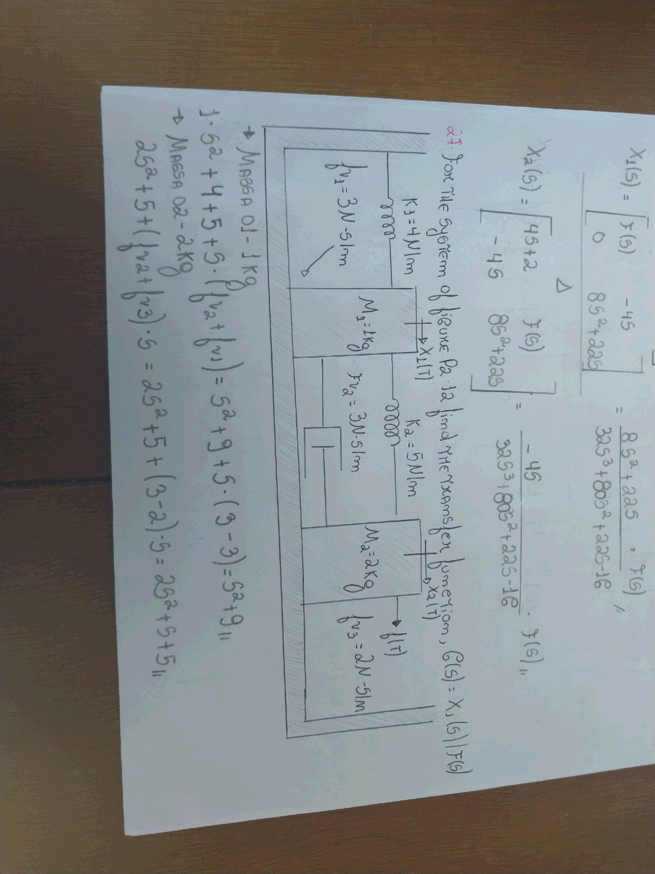 X1(s) = [ F(s) -4s
0 8s²+22s ] = 8s²+22s / 32s³+80s²+22s-16 . F(s) //
Δ
X2(s) = [ 4s+2 F(s)
-4s 8s²+22s ] = -4s / 32s³+80s²+22s-16 . F(s) //
27 For the system of figure P2.12 find the transfer function, G(s) = X1(s)/F(s)
X1(T) X2(T)
K1=4N/m K2=5N/m f(T)
M1=1kg M2=2kg
fv1=3N-s/m fv2=3N-s/m fv3=2N-s/m
→ Massa 01 - 1kg
1·s²+4+5+s·(fv2+fv1) = s²+9+s·(3-3) = s²+9 //
→ Massa 02 - 2kg
2s²+5+(fv2+fv3)·s = 2s²+5+(3-2)·s = 2s²+s+5 //